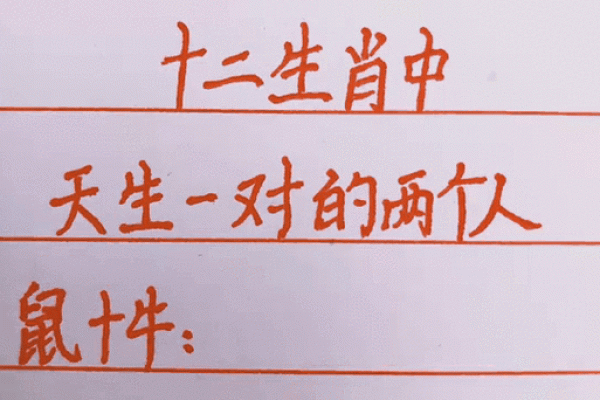 十二生肖中
天生一对的两个人
鼠+牛：